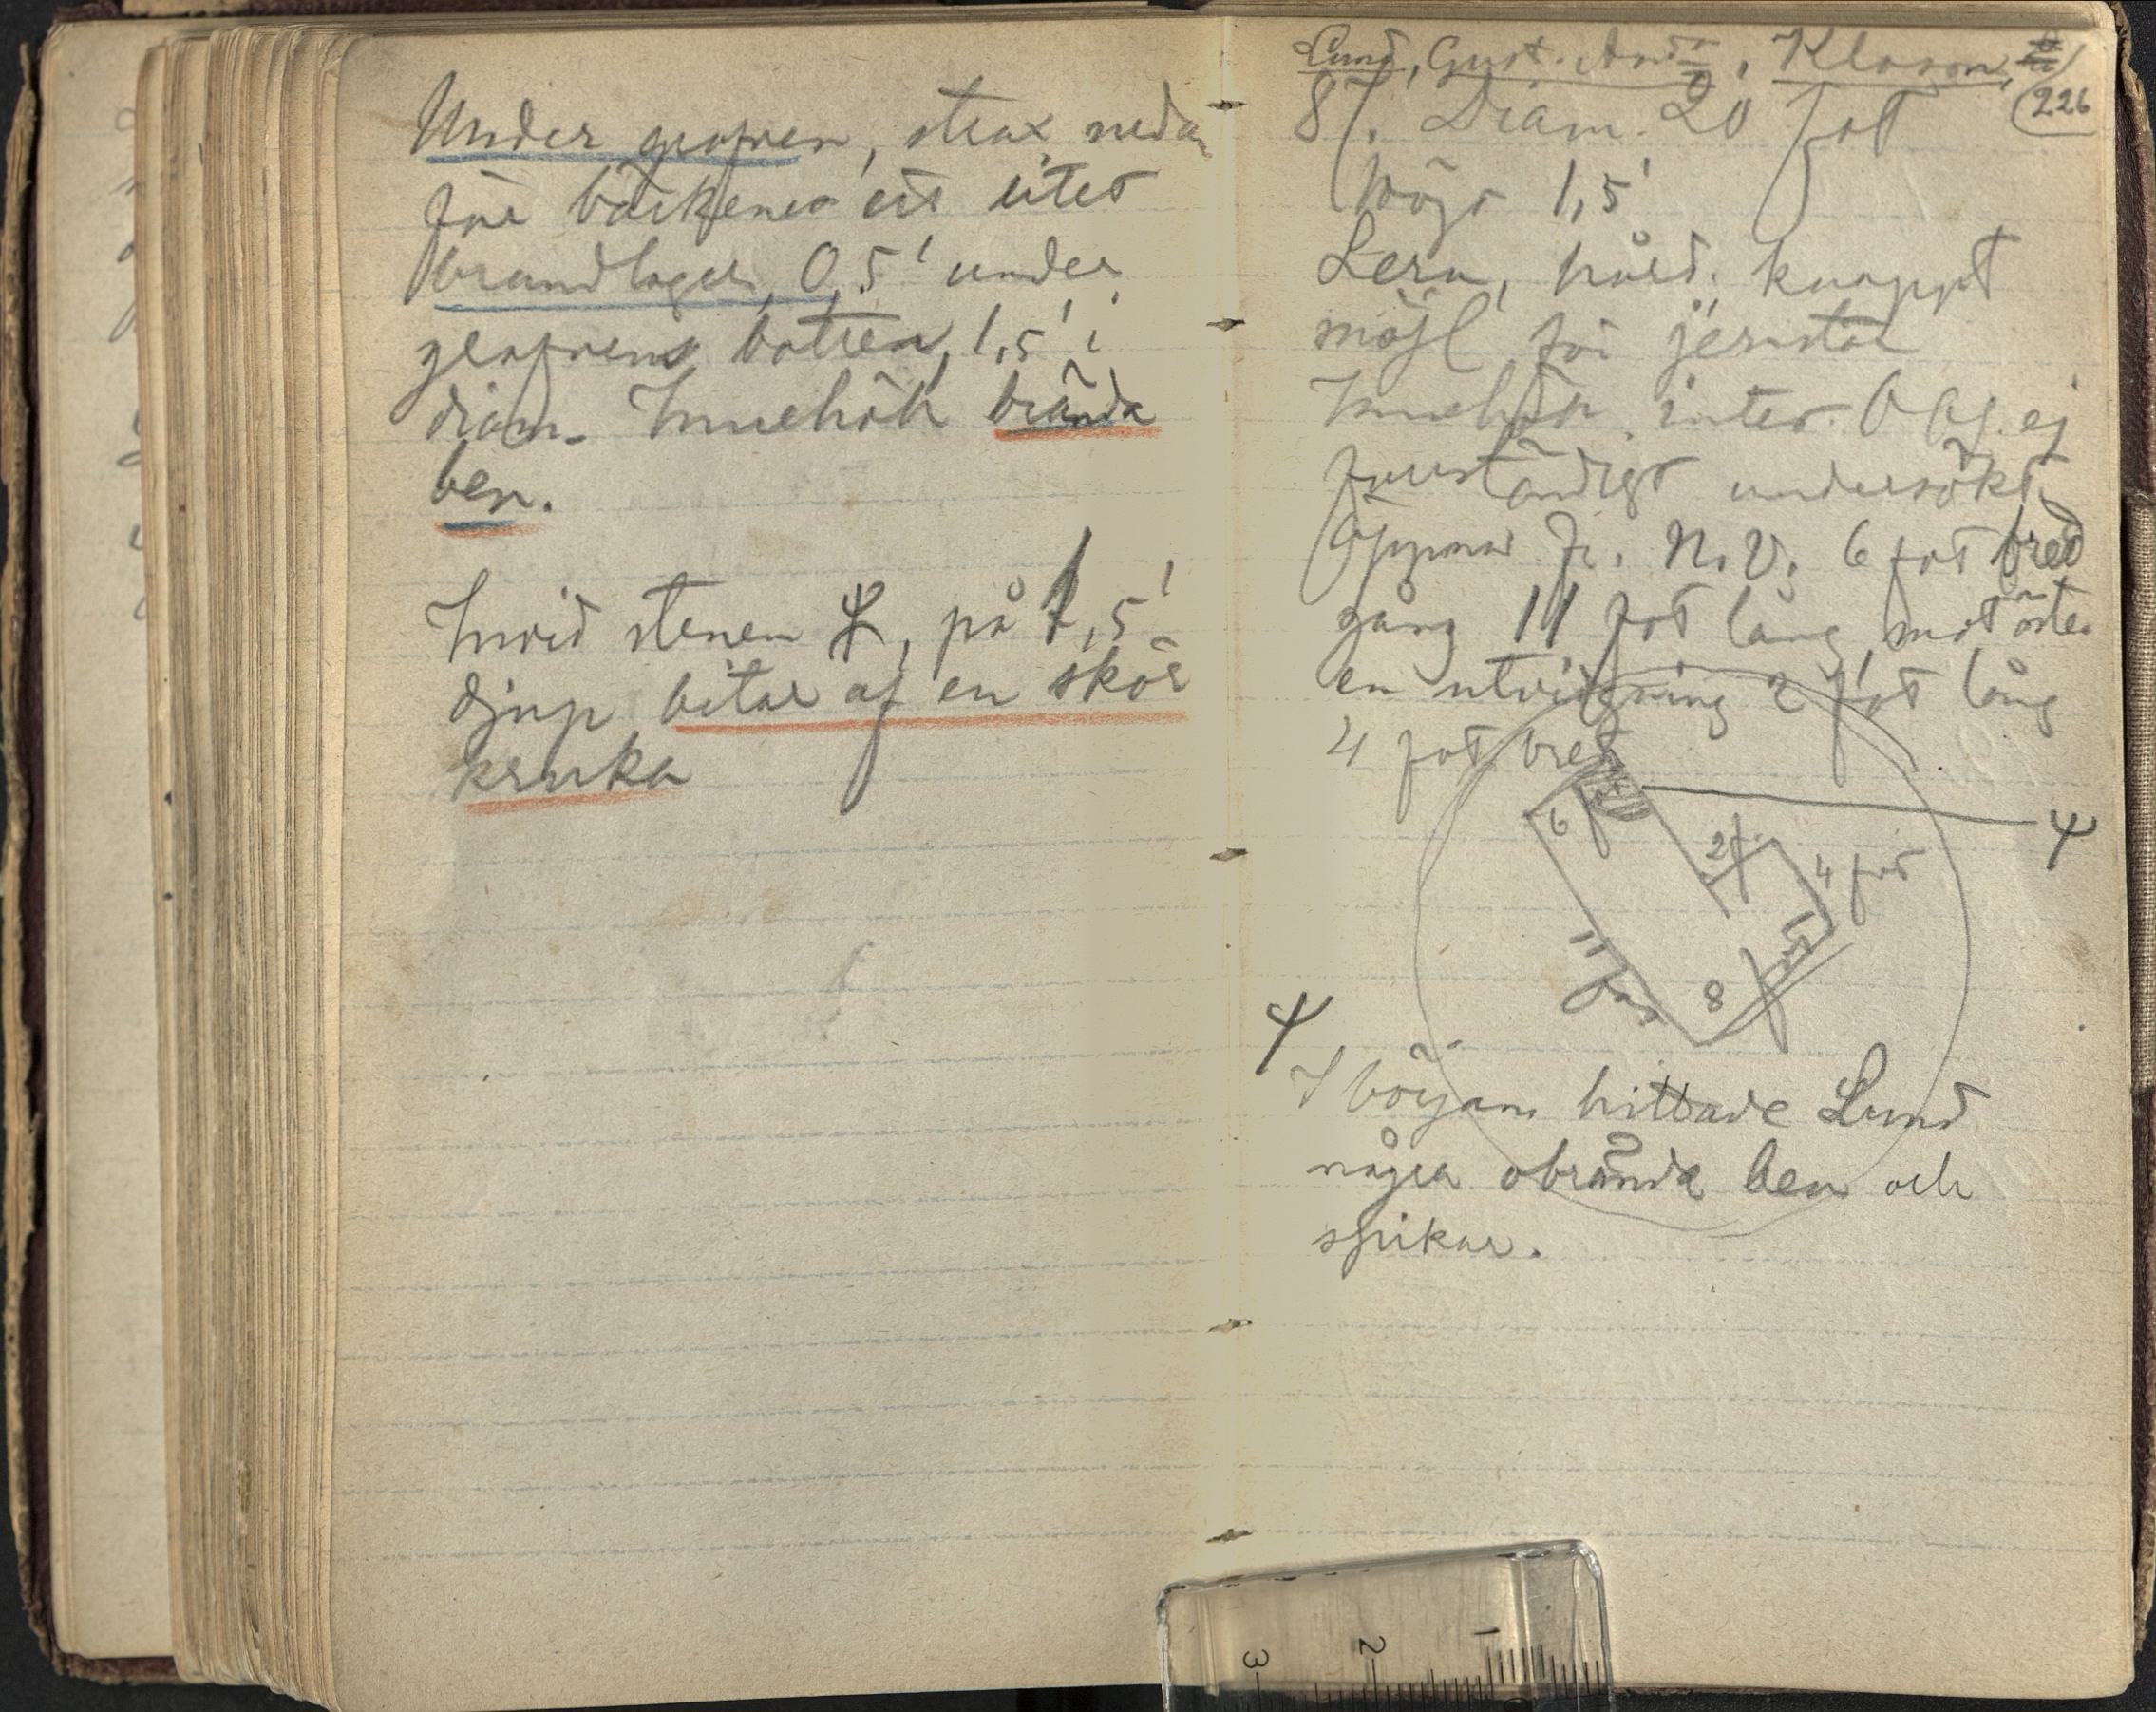 Under grafven, strax nedan
för bäckenet ett litet
brandlager, 0,5' under
grafvens botten, 1,5' i
diam. Innehöll brända
ben.
Invid stenen Ψ, på 1,5'
djup bitar af en skör
kruka
Lund, Gust. And., Klason,
226
87. Diam. 20 fot
Höjd 1,5'
Lera, hård, knappt
möjl för jernstör
Innehöll intet. Obs. ej
fullständigt undersökt.
Öppnad fr. N.V. 6 fot bred
gång 11 fot lång, mot öster
en utvidgning 2 fot lång
4 fot bred
6 f
Ψ
2 f
4 fot
11 fot
8 f
Ψ
I början hittade Lund
några obrända ben och
spikar.
3 2 1